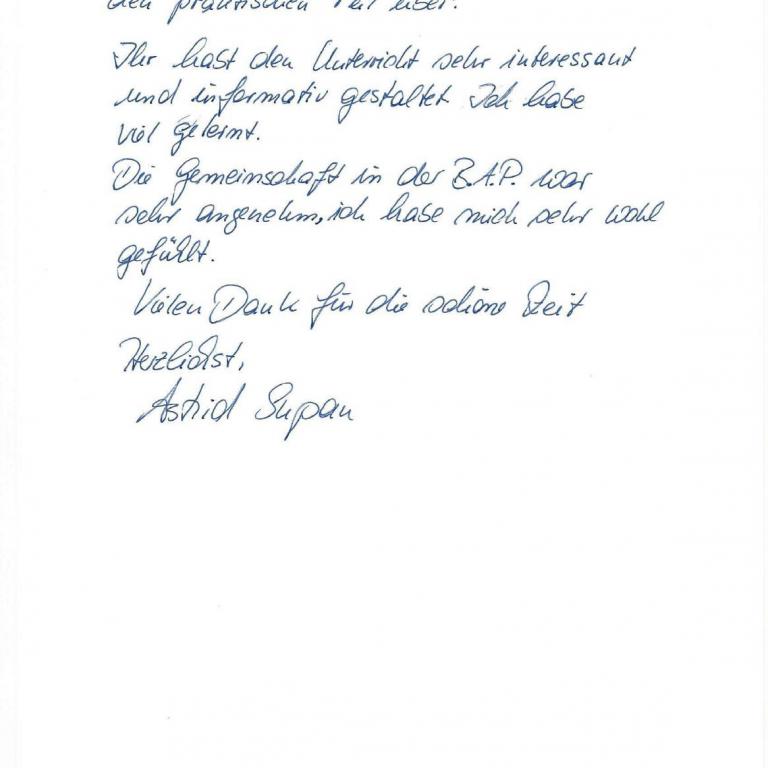 den praktischen Teil über.
Ihr hast den Unterricht sehr interessant
und informativ gestaltet. Ich habe
viel gelernt.
Die Gemeinschaft in der B.A.P. war
sehr angenehm, ich habe mich sehr wohl
gefühlt.
Vielen Dank für die schöne Zeit
Herzlichst,
Astrid Supan